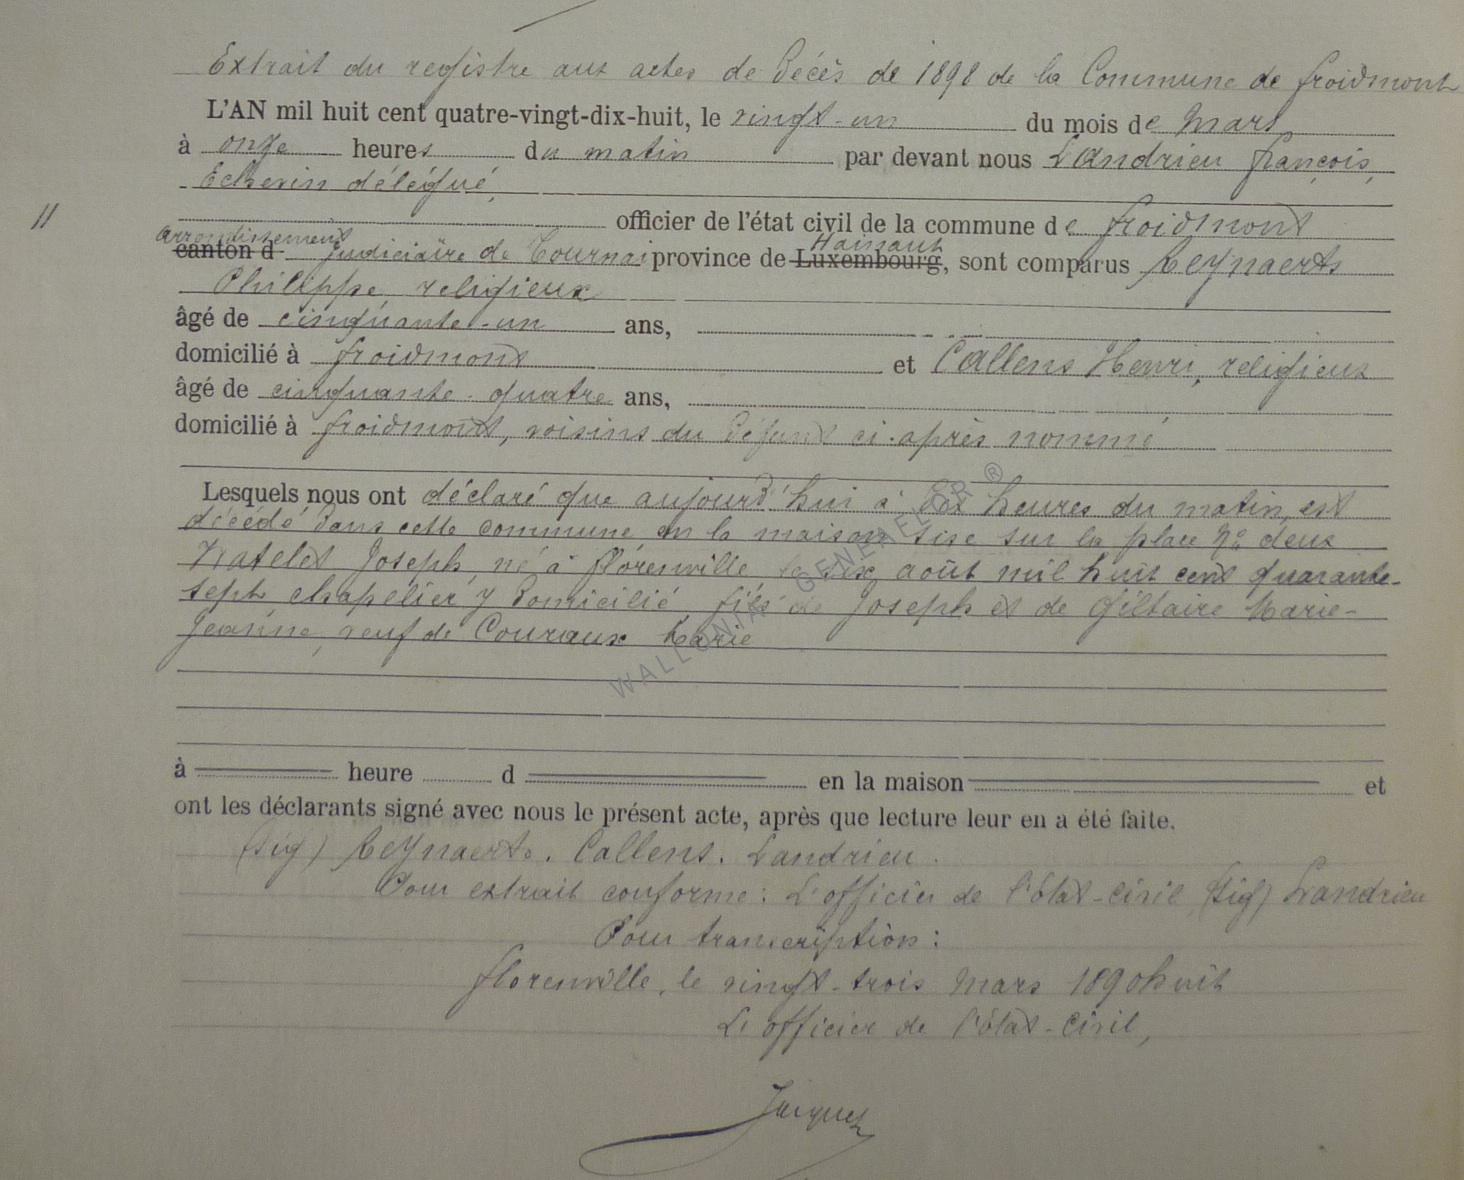 Extrait du registre aux actes de Décès de 1898 de la Commune de froidmont
L'AN mil huit cent quatre-vingt-dix-huit, le vingt-un du mois de Mars
à onze heures du matin par devant nous Landrieu françois,
Echevin délégué,
11
officier de l'état civil de la commune de froidmont
arrondissement Hainaut
canton d judiciaire de Tournai province de Luxembourg, sont comparus Reynaerts
Philippe, religieux
âgé de cinquante-un ans,
domicilié à froidmont et Callens Henri, religieux
âgé de cinquante-quatre ans,
domicilié à froidmont, voisins du défunt ci-après nommé
Lesquels nous ont déclaré que aujourd'hui à heures du matin, est
décédé dans cette commune en la maison sise sur la place No deux
Watelet Joseph, né à florenville, le six août mil huit cent quarante-
sept, chapelier y domicilié, fils de Joseph et de Giltaire Marie-
Jeanne, veuf de Couraux Marie
à heure d en la maison et
ont les déclarants signé avec nous le présent acte, après que lecture leur en a été faite.
(sig) Reynaerts. Callens. Landrieu.
Pour extrait conforme: L'officier de l'état-civil, (sig) Landrieu
Pour transcription:
florenville, le vingt-trois Mars 1890huit
L'officier de l'état-civil,
Jacques
WALLONIA GENEALOGER ®